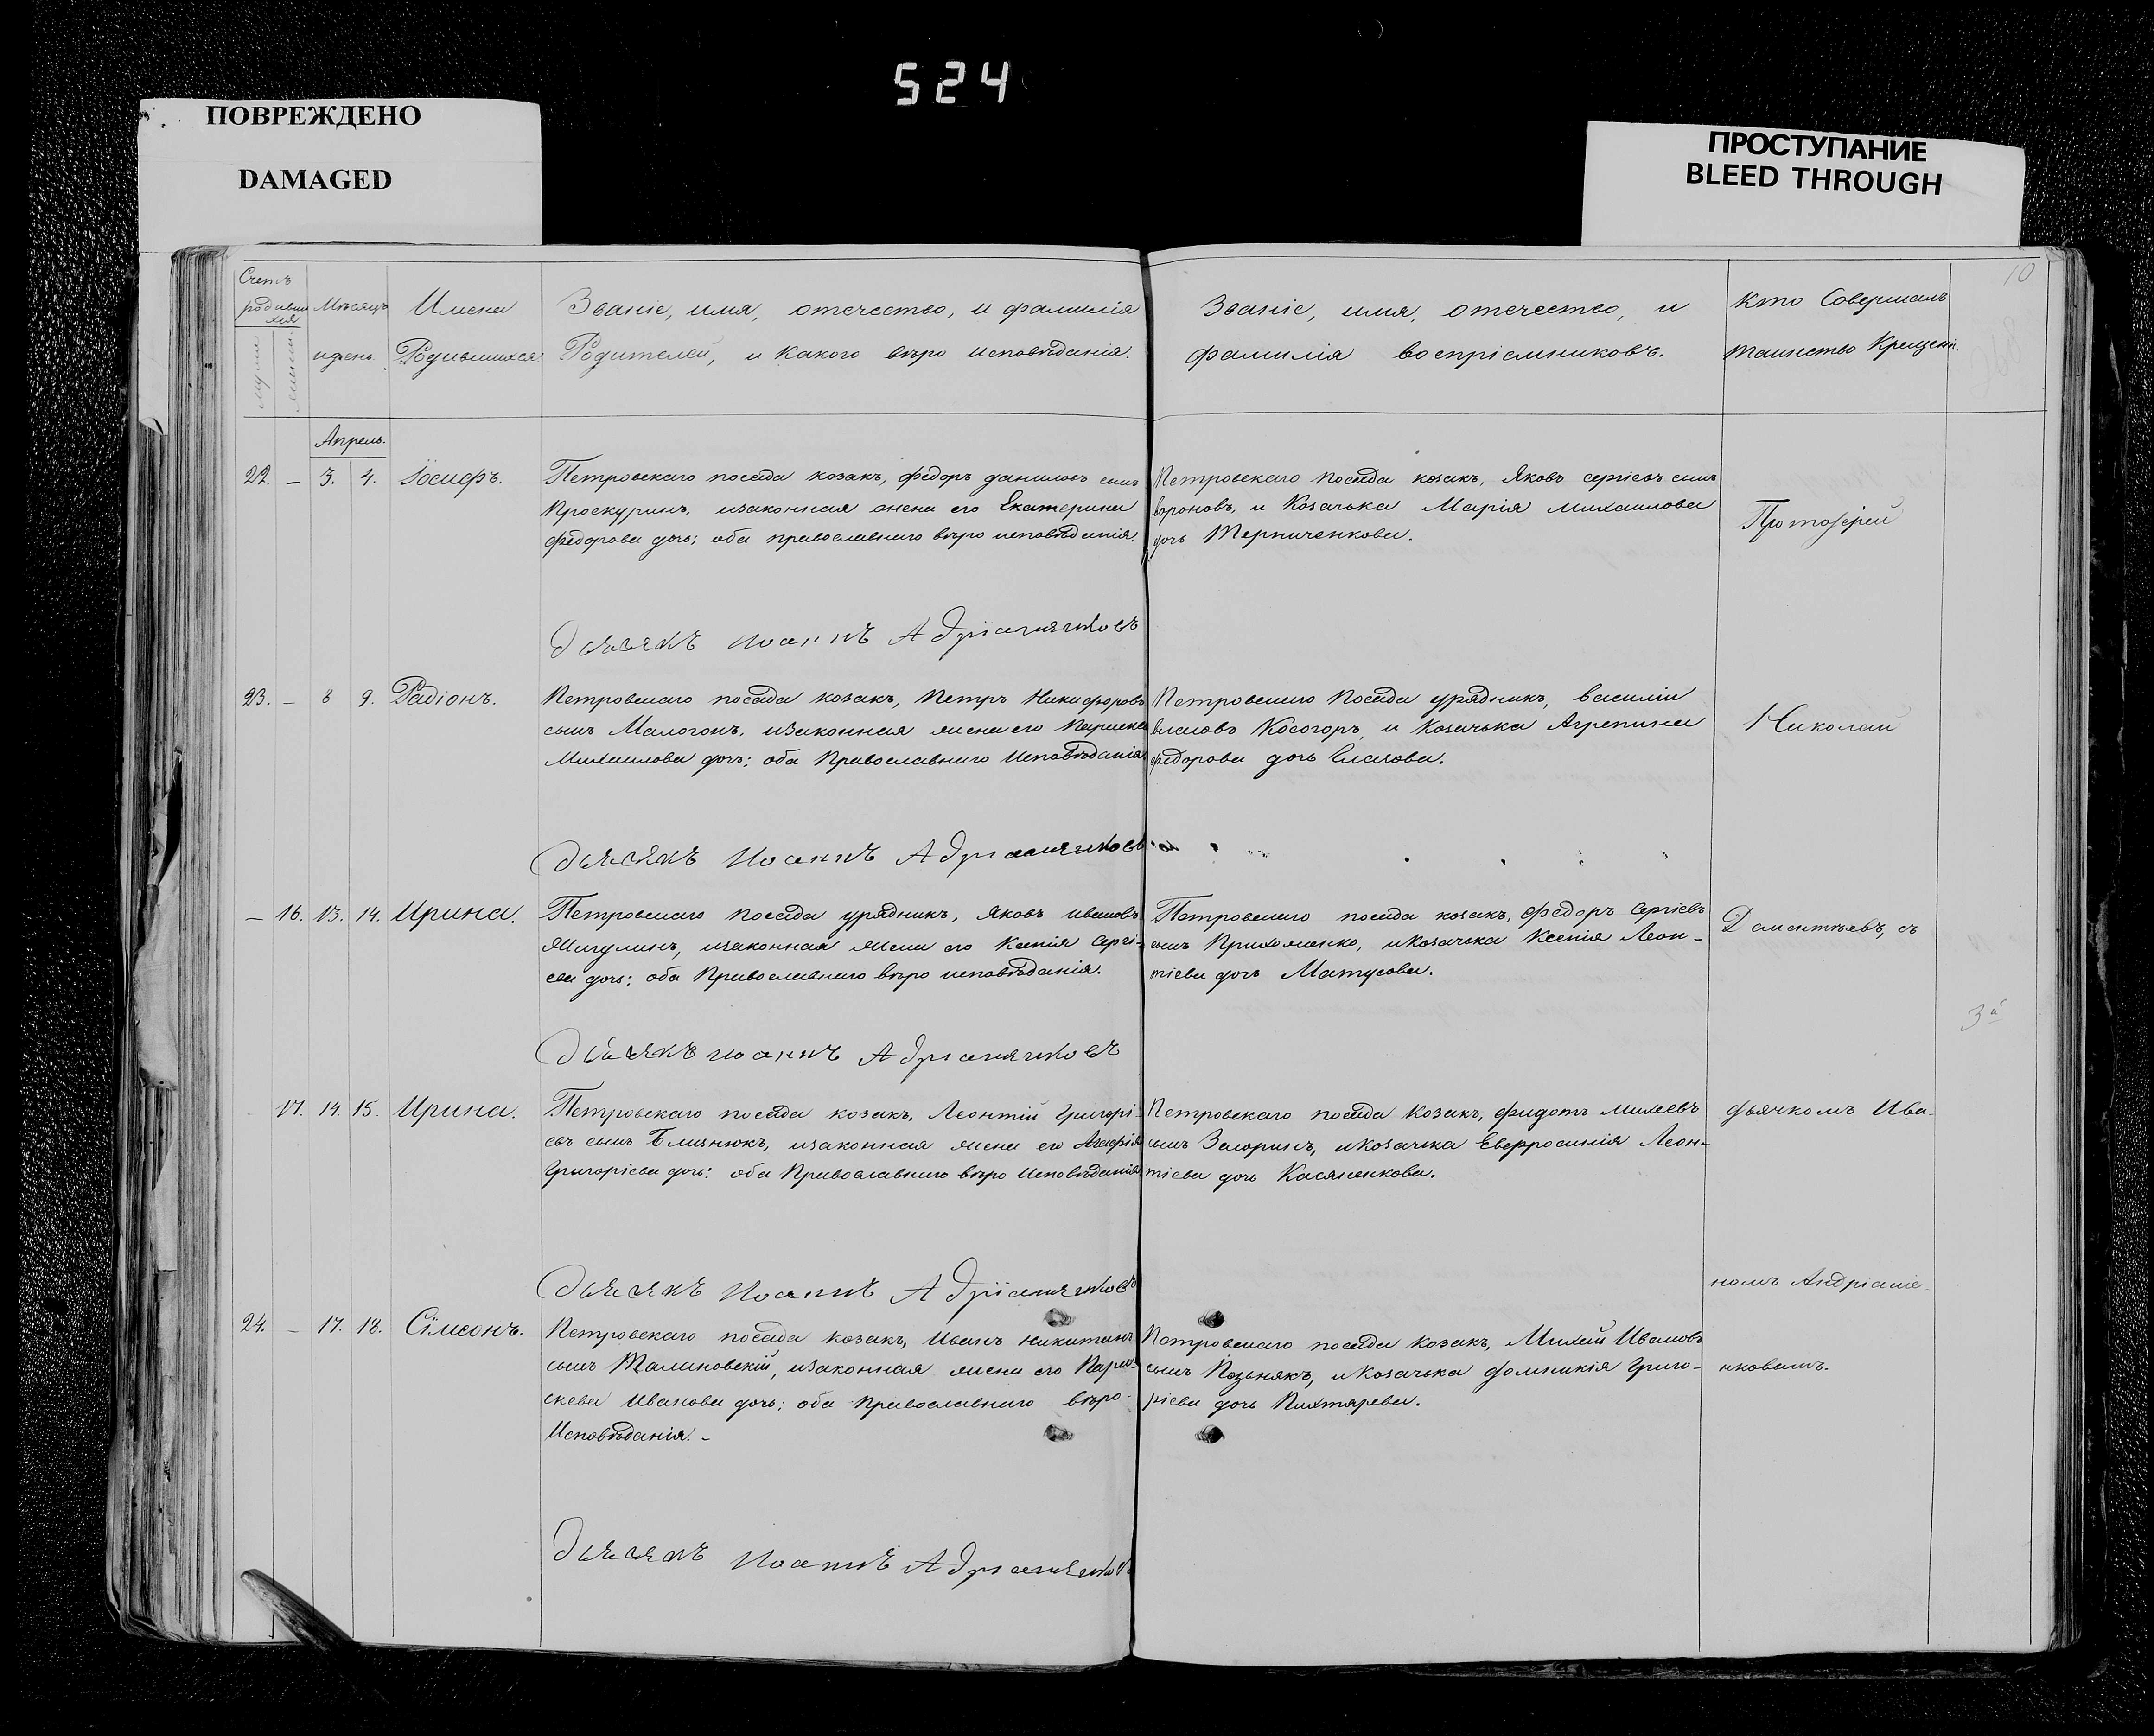 524
ПОВРЕЖДЕНО
DAMAGED
ПРОСТУПАНИЕ
BLEED THROUGH
10
Счетъ
родивши
хся
Мѣсяцъ
и день.
Имена
Родившихся
Званіе, имя, отечество, и фамилія
Родителей, и какого вѣро исповѣданія.
Званіе, имя, отечество, и
фамилія воспріемниковъ.
Кто Совершалъ
таинство Крещенія.
Апрель.
22. – 3. 4. Іосифъ.
Петровскаго посада козакъ, Федоръ Даниловъ сынъ
Проскуринъ, изаконная жена его Екатерина
Федорова дочь; оба православнаго вѣро исповѣданія.
Петровскаго посада козакъ, Яковъ Сергіевъ сынъ
Вороновъ, и Козачька Марія Михаилова
дочь Терниченкова.
Протоіерей
Дьячекъ Иоаннъ Адріанячковъ
23. – 8 9. Радіонъ.
Петровскаго посада козакъ, Петръ Никифоровъ
сынъ Малогонъ, изаконная жена его
Михаилова дочь; оба Православнаго Исповѣданія
Петровскаго посада урядникъ, Василій
Власовъ Косогоръ, и Козачька Агрепина
Федорова дочь Власова.
Николай
Дьячекъ Иоаннъ
– 16. 13. 14. Ирина.
Петровскаго посада урядникъ, Яковъ Ивановъ
Мигулинъ, изаконная жена его Ксенія Сергі-
ева дочь; оба Православнаго вѣро исповѣданія.
Петровскаго посада козакъ, Федоръ Сергіевъ
сынъ Прихоменко, и Козачька Ксенія Леон-
тіева дочь Матусова.
Дементьевъ, съ
3й
Дьячекъ Иоаннъ
17. 14. 15. Ирина.
Петровскаго посада козакъ, Леонтій Григорі-
евъ сынъ Близнюкъ, изаконная жена его Агафія
Григорієва дочь: оба Православнаго вѣро Исповѣданія
Петровскаго посада Козакъ, Федотъ Михеевъ
сынъ Загоринъ, и Козачька Евфросинія Леон-
тіева дочь Касяненкова.
дьячкомъ Ива-
Дьячекъ Иоаннъ
номъ Андріане-
24. – 17. 18. Сімеонъ.
Петровскаго посада козакъ, Иванъ Никитинъ
сынъ Талиновскій, изаконная жена его Парас-
кева Иванова дочь; оба Православнаго вѣро-
Исповѣданія. –
Петровскаго посада козакъ, Михей Ивановъ
сынъ Позьнякъ, и Козачька Фомникія Григо-
ріева дочь Пихтярева.
нковымъ.
Дьячекъ Иоаннъ